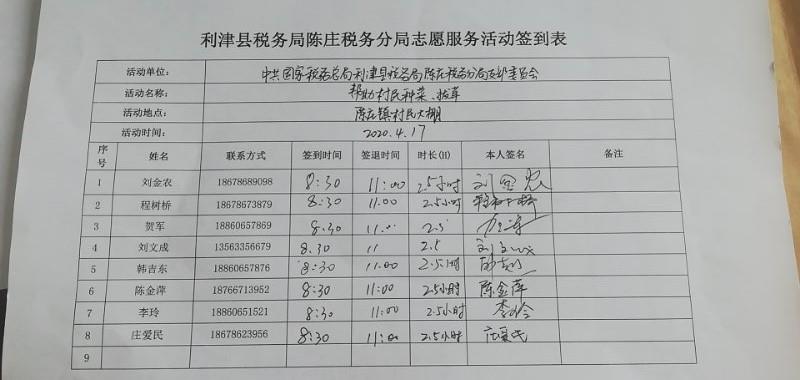 利津县税务局陈庄税务分局志愿服务活动签到表
活动单位： 中共国家税务总局利津县税务局陈庄税务分局支部委员会
活动名称： 帮助村民种菜、拔草
活动地点： 陈庄镇村民大棚
活动时间： 2020.4.17
序号 姓名 联系方式 签到时间 签退时间 时长(H) 本人签名 备注
1 刘金农 18678689098 8:30 11:00 2.5小时 刘金农
2 程树桥 18678673879 8:30 11.00 2.5小时 程树桥
3 贺军 18860657869 8:30 11... 2.5 贺军
4 刘文成 13563356679 8.30 11 2.5 刘文成
5 韩吉东 18860657876 8:30 11.00 2.5小时
6 陈金萍 18766713952 8:30 11:00 2.5小时 陈金萍
7 李玲 18860651521 8:30 11:00 2.5小时 李玲
8 庄爱民 18678623956 8:30 11:00 2.5小时 庄爱民
9